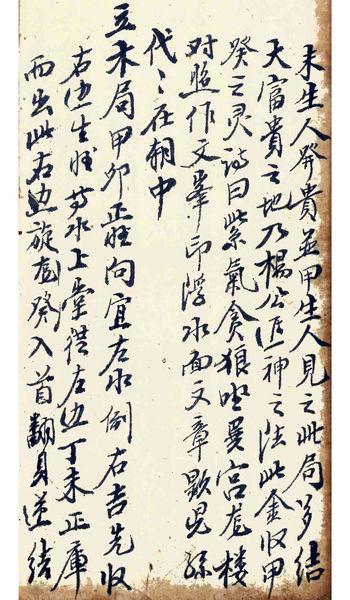 未生人癸貴並甲生人見之此局多結
大富貴之地乃楊公進神之法此金収甲
癸之灵诗曰紫氣貪狼巽宮龙楼
对照作文峯印浮水面文章顕児孫
代〻在朝中
木局甲卯正旺向宜左水倒右吉先収
右边生旺水上堂從右边丁未正庫
而出此右边旋龙癸入首翻身逆結